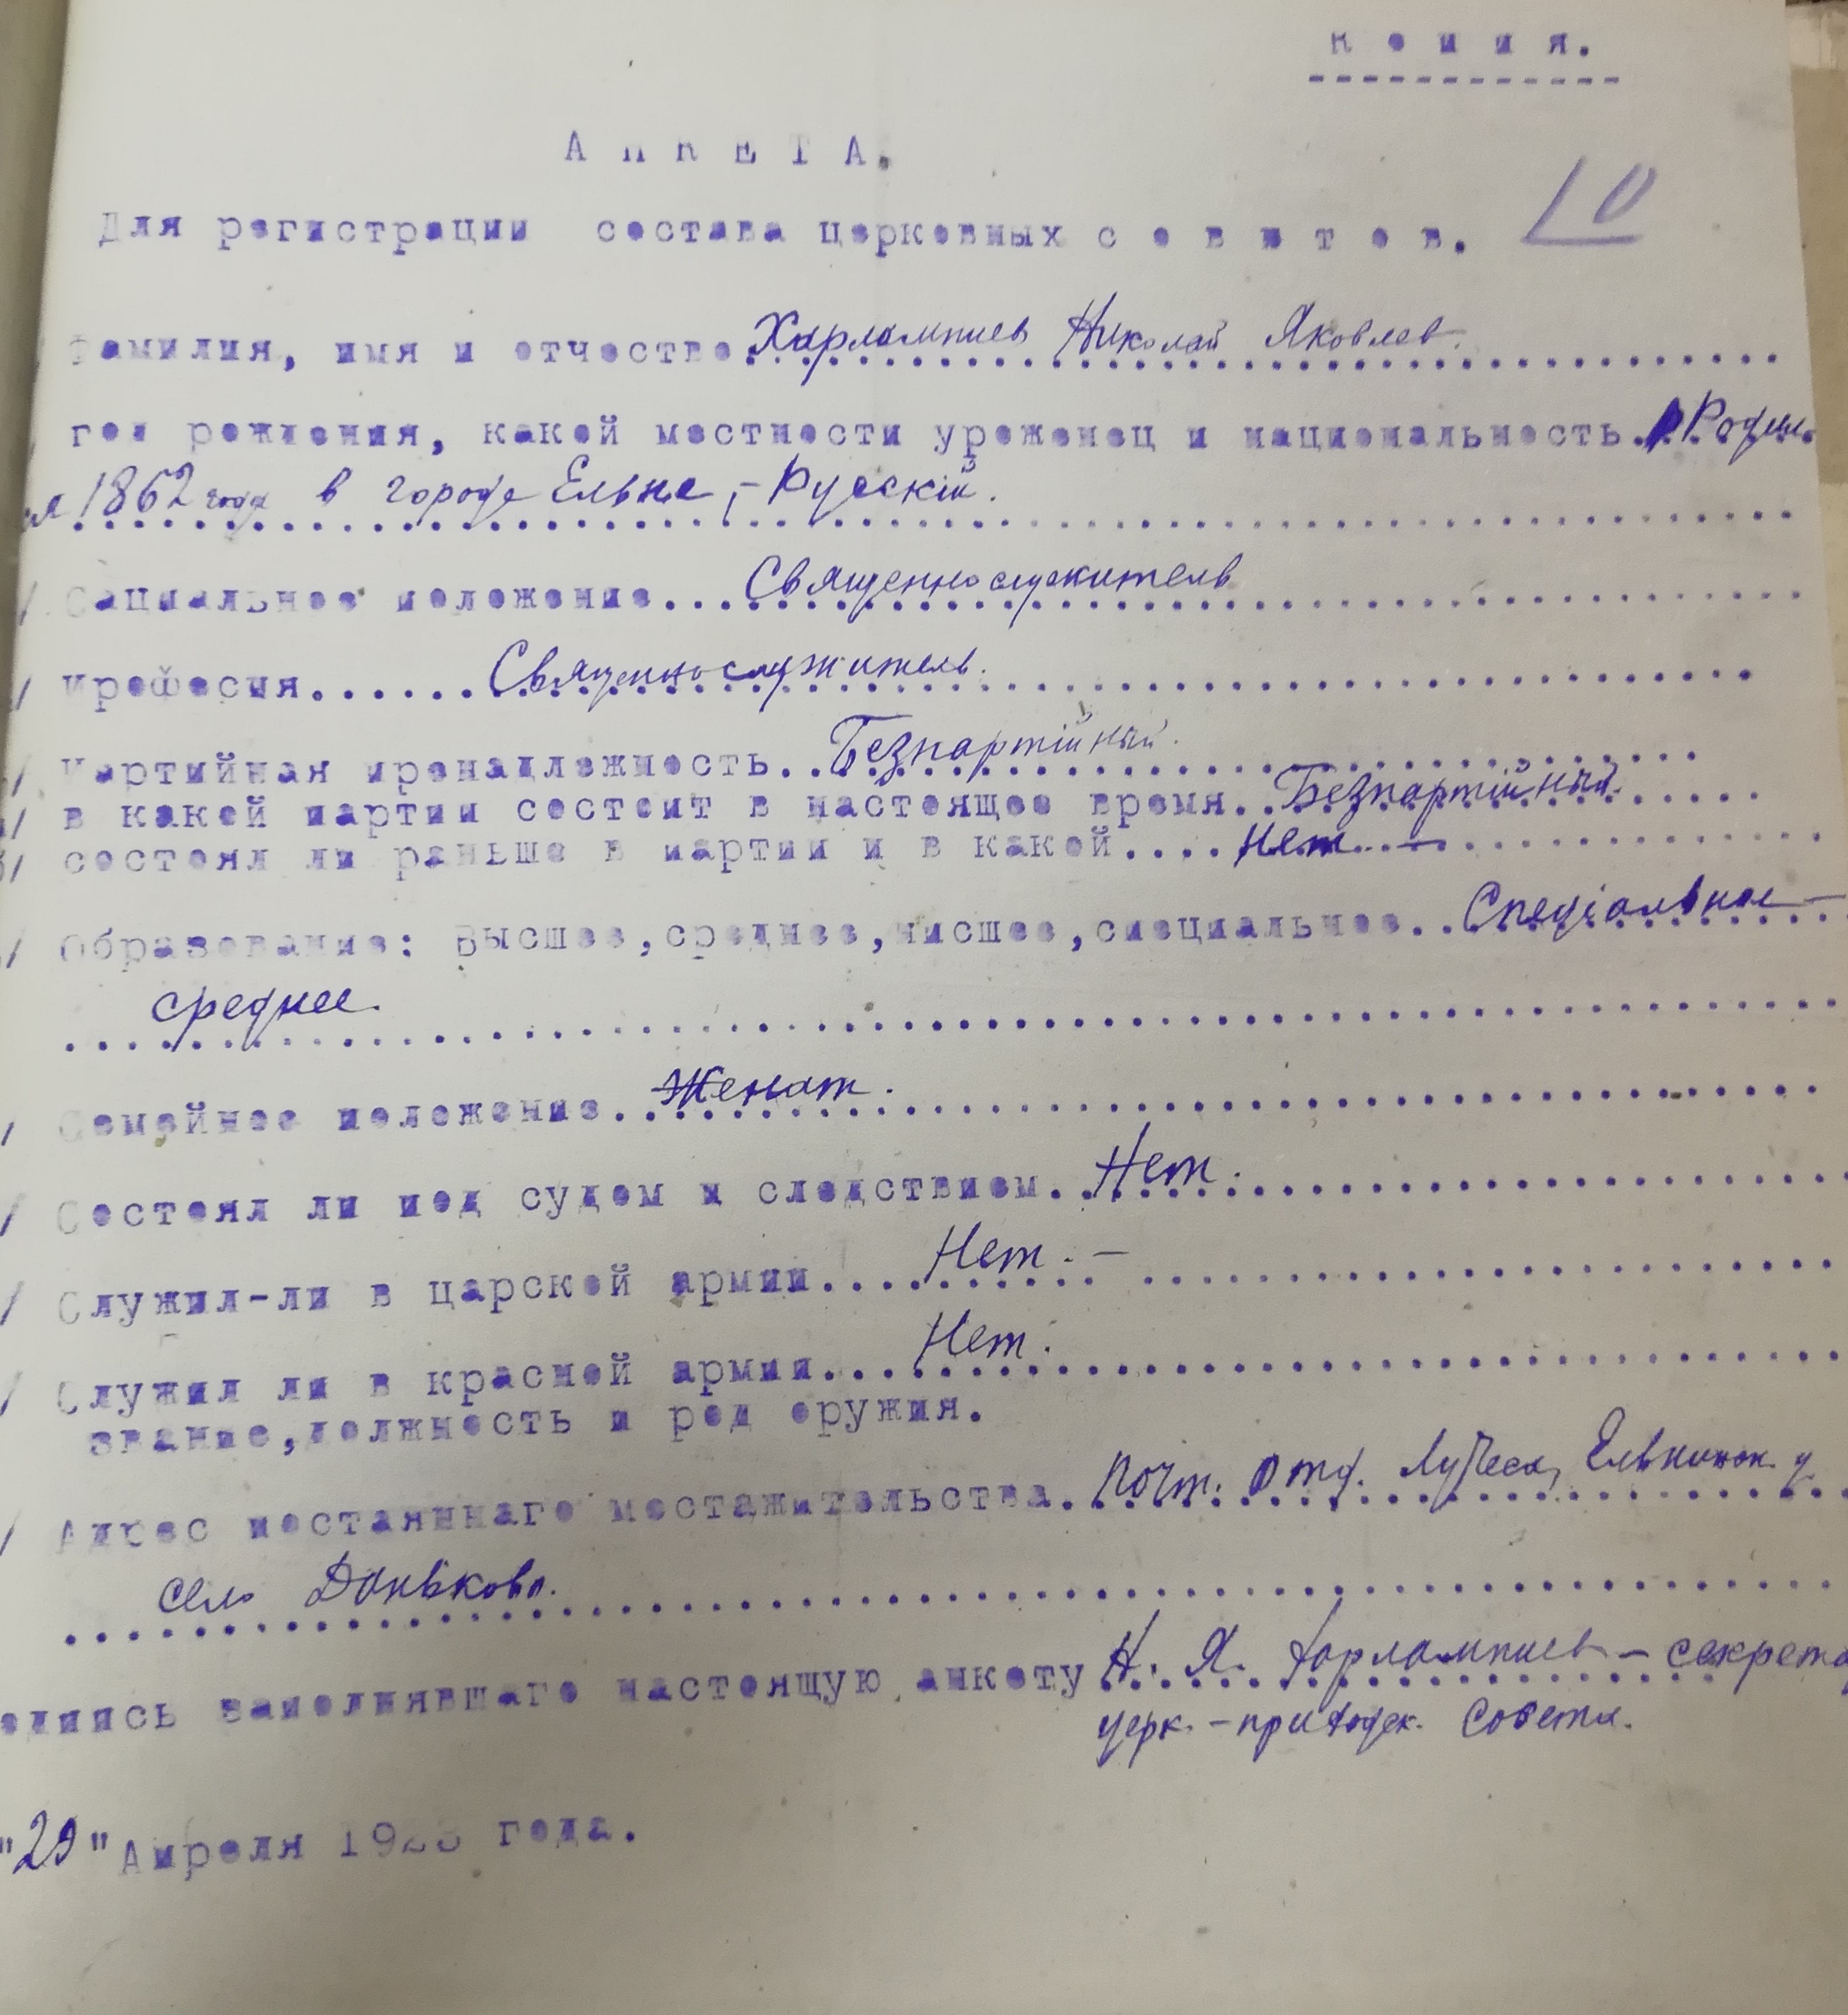 Копия.
АНКЕТА.
10
Для регистрации состава церковных советов.
фамилия, имя и отчество Харлампиев Николай Яковлев.
год рождения, какой местности уроженец и национальность. Родил
ся 1862 года в городе Ельне, - Русскій.
Сациальное положение... Священнослужитель
Професия...... Священнослужитель.
Партийная пренадлежность.. Безпартійный.
в какой партии состоит в настоящее время.. Безпартійный.
состоял ли раньше в партии и в какой.... Нет. —
Образование: Высшее, среднее, нисшее, специальное.. Спеціальное —
среднее.
Семейное положение.. Женат.
Состоял ли под судом и следствием.. Нет.
Служил-ли в царской армии.... Нет. —
Служил ли в красной армии.... Нет.
звание, должность и род оружия.
Адрес постаяннаго местажительства. Почт. Отд. Лучеса, Ельнинск. у.
село Даньково.
одпись заполнявшаго настоящую анкету Н. Я. Харлампиев - секрета
церк. - приходск. Совета.
"29" Апреля 1923 года.